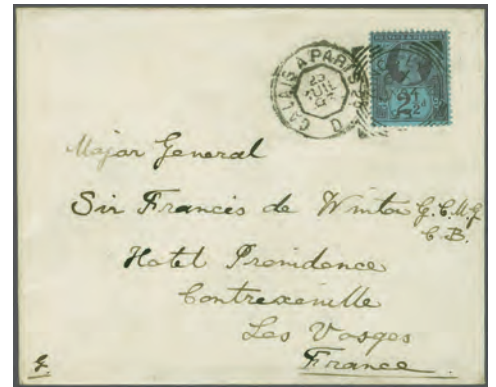 CALAIS A PARIS
25
JUIL
D
2½d
Major General
Sir Francis de Winton G.C.M.G
C.B.
Hotel Providence
Contrexeville
Les Vosges
France
G.